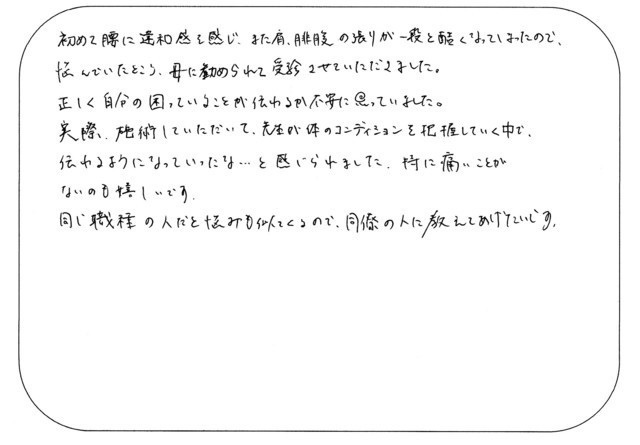 初めて腰に違和感を感じ、また肩、腓腹の張りが一段と酷くなってしまったので、
悩んでいたところ、母に勧められて受診させていただきました。
正しく自分の困っていることが伝わるか不安に思っていました。
実際、施術していただいて、先生が体のコンディションを把握していく中で、
伝わるようになっていったな…と感じられました。特に痛いことが
ないのも嬉しいです。
同じ職種の人だと悩みも似てくるので、同僚の人に教えてあげたいです。